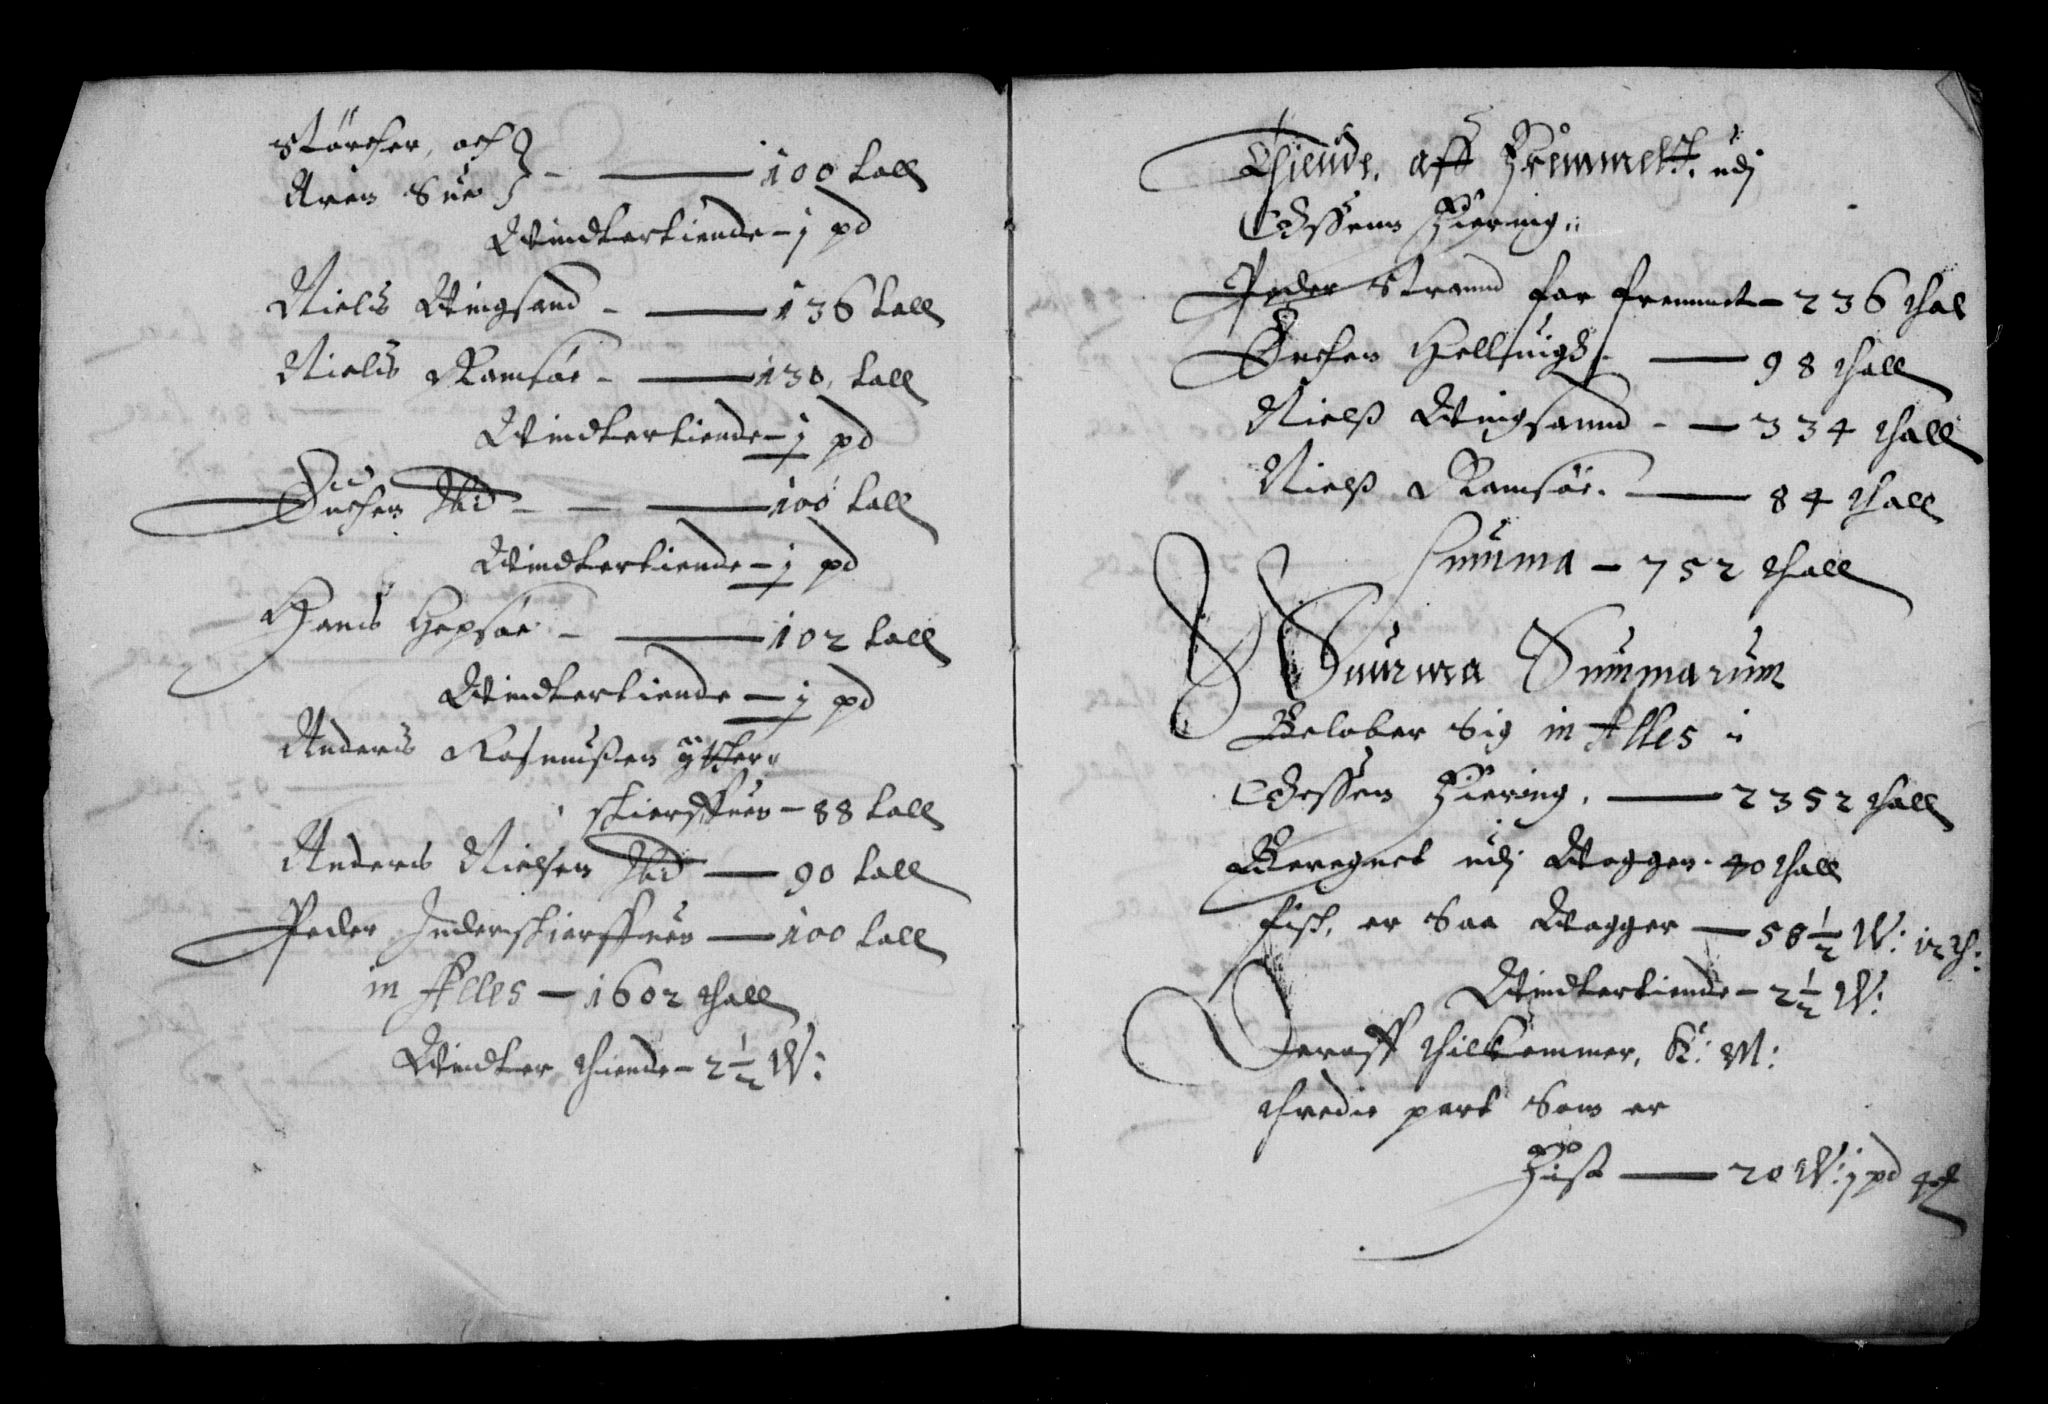 Størcker, och
Aren Sues } — 100 tall
Vindtertiende – j pd
Niels Vingsand – 136 tall
Niels Ramsøe – 130, tall
Vindtertiende – j pd
Ibid – 100 tall
Vindtertiende – j pd
Hans Hepsøe – 102 tall
Vindtertiende – j pd
Anders Rasmußen ytter
skierffuen – 88 tall
Anders Nielsen Ibid – 90 tall
Peder Inderskierffuen – 100 tall
in Alles – 1602 thall
Vindter thiende – 2½ W:
Thiende, aff Fremmet, udj
Øssens Fiering
Peder Strannd for fremmet – 236 thal
98 thall
Nielß Vingsannd – 334 thall
Nielß Ramsøe. – 84 thall
Summa – 752 thall
Summa Summarum
Beløber sig in Alles i
Øessens Fiering, – 2352 thall
Beregnet udj Wogger. 40 thall
fisk, er Saa Wogger – 58½ W: 12 th:
Vindtertiende – 2½ W:
Deraff thilkommer, K: M:
thredie part Som er
Fisk – 20 W: j pd